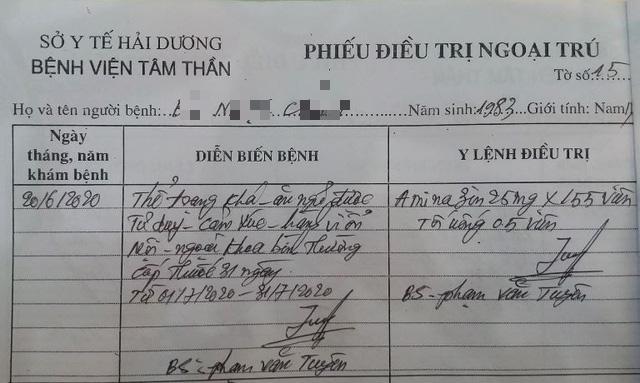 SỞ Y TẾ HẢI DƯƠNG
BỆNH VIỆN TÂM THẦN
PHIẾU ĐIỀU TRỊ NGOẠI TRÚ
Tờ số: 15
Họ và tên người bệnh: Năm sinh: 1983 Giới tính: Nam/
Ngày tháng, năm khám bệnh
DIỄN BIẾN BỆNH
Y LỆNH ĐIỀU TRỊ
20/6/2020
Thể trạng khá - ăn ngủ được
Tư duy - cảm xúc - hành vi ổn
Nội - ngoại khoa bình thường
Cấp thuốc 31 ngày
Từ 01/7/2020 - 31/7/2020
BS - phạm văn Tuyên
Aminazin 25mg x 15,5 viên
Tối uống 0.5 viên
BS - phạm văn Tuyên